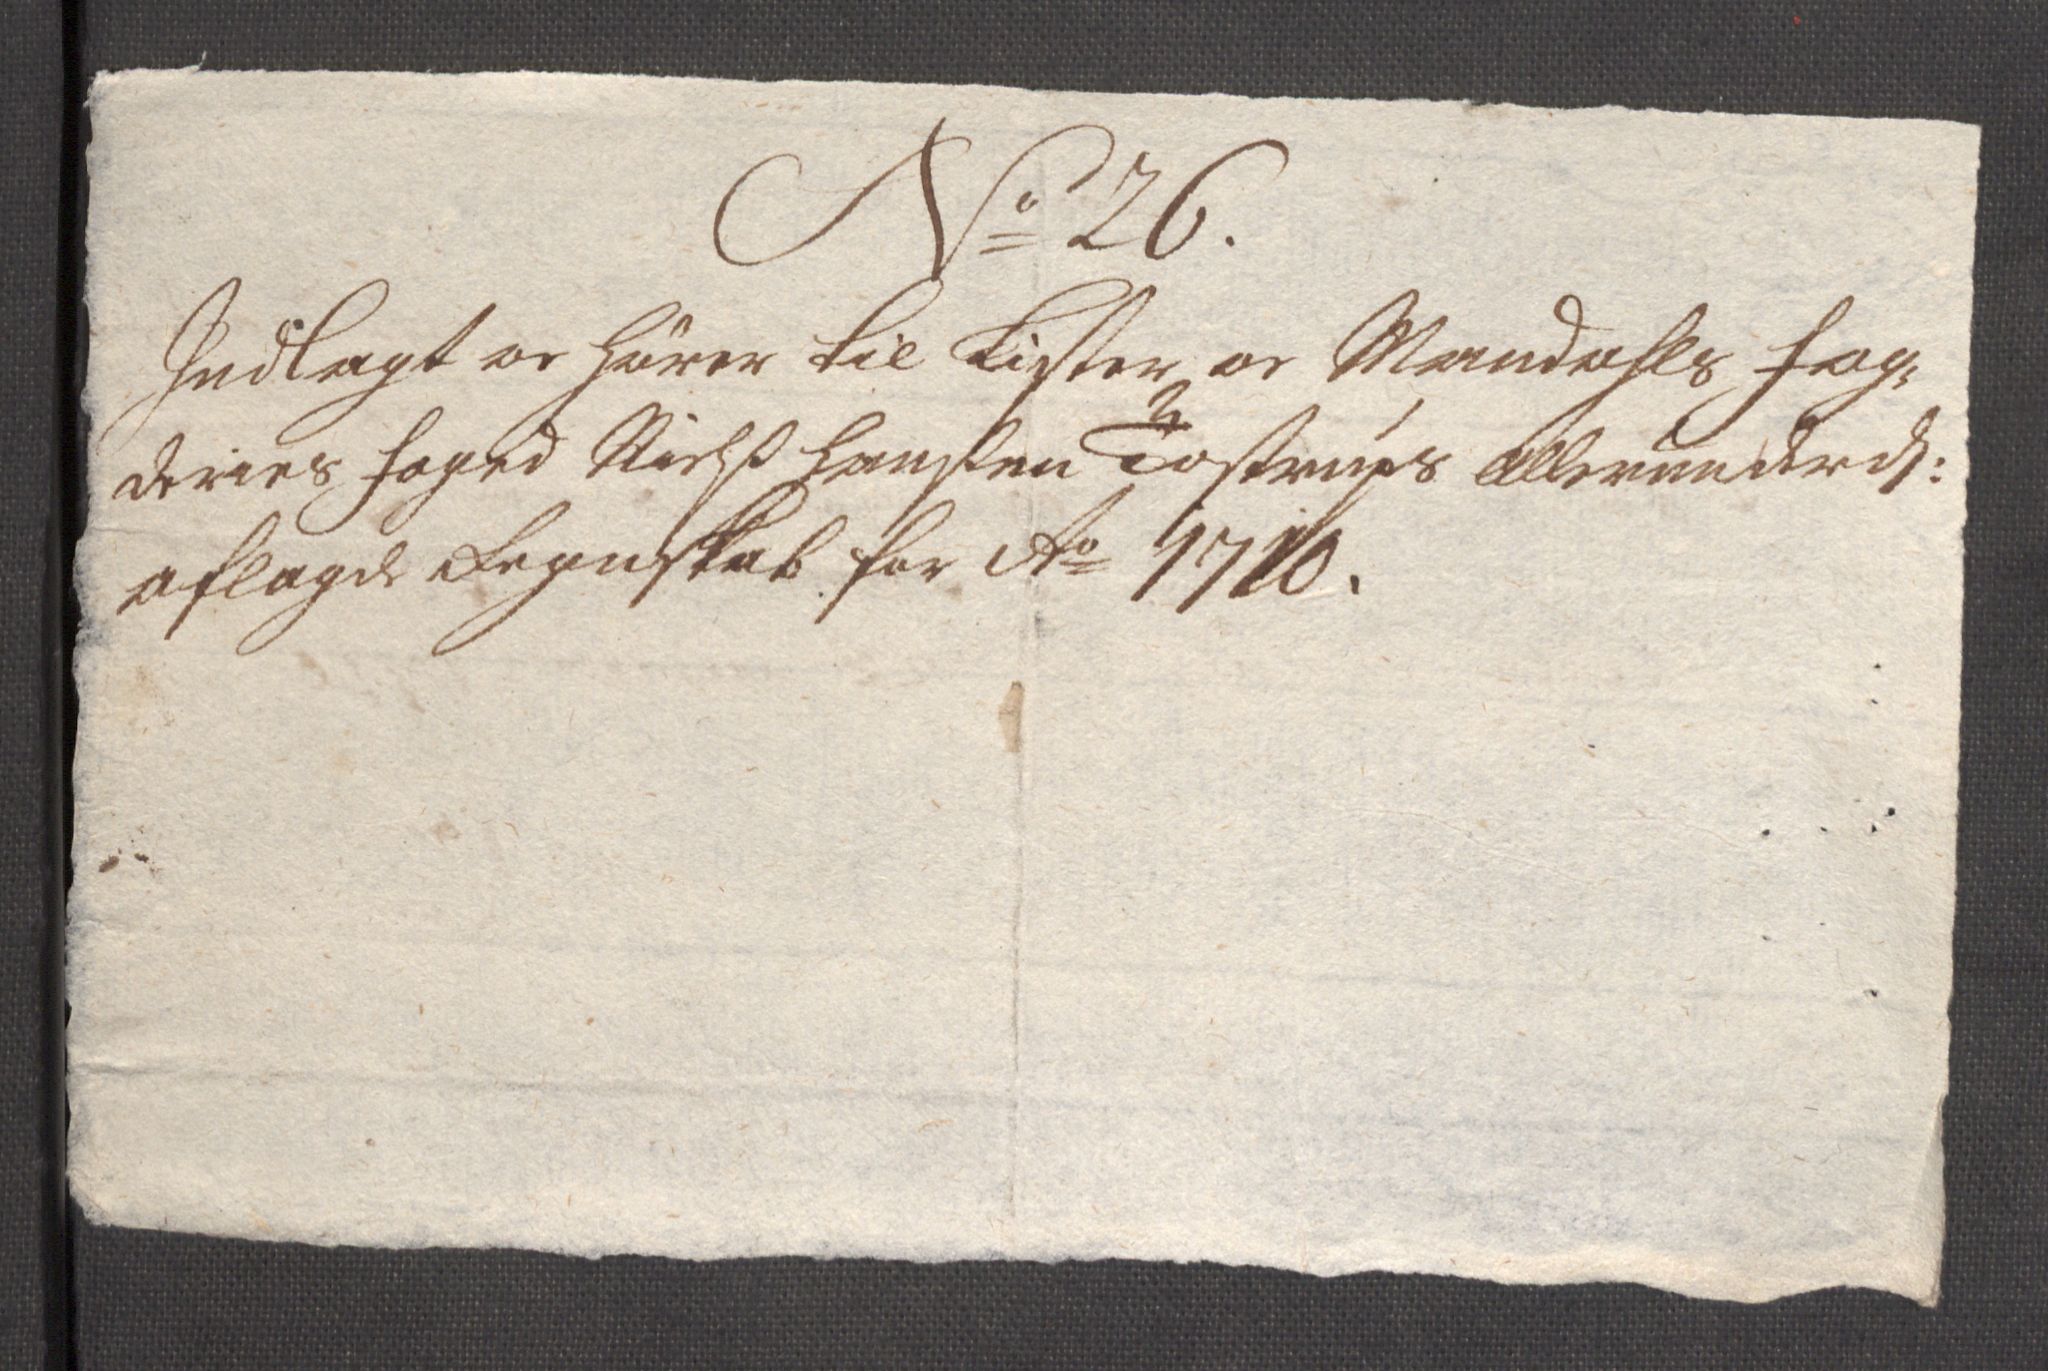 No 26.
Indlagt oc hörer til Lister oc Mandahls fog-
deries foged Nielß Hansßen Tostrups allerunderd:
aflagde Regnskab for Ao 1710.